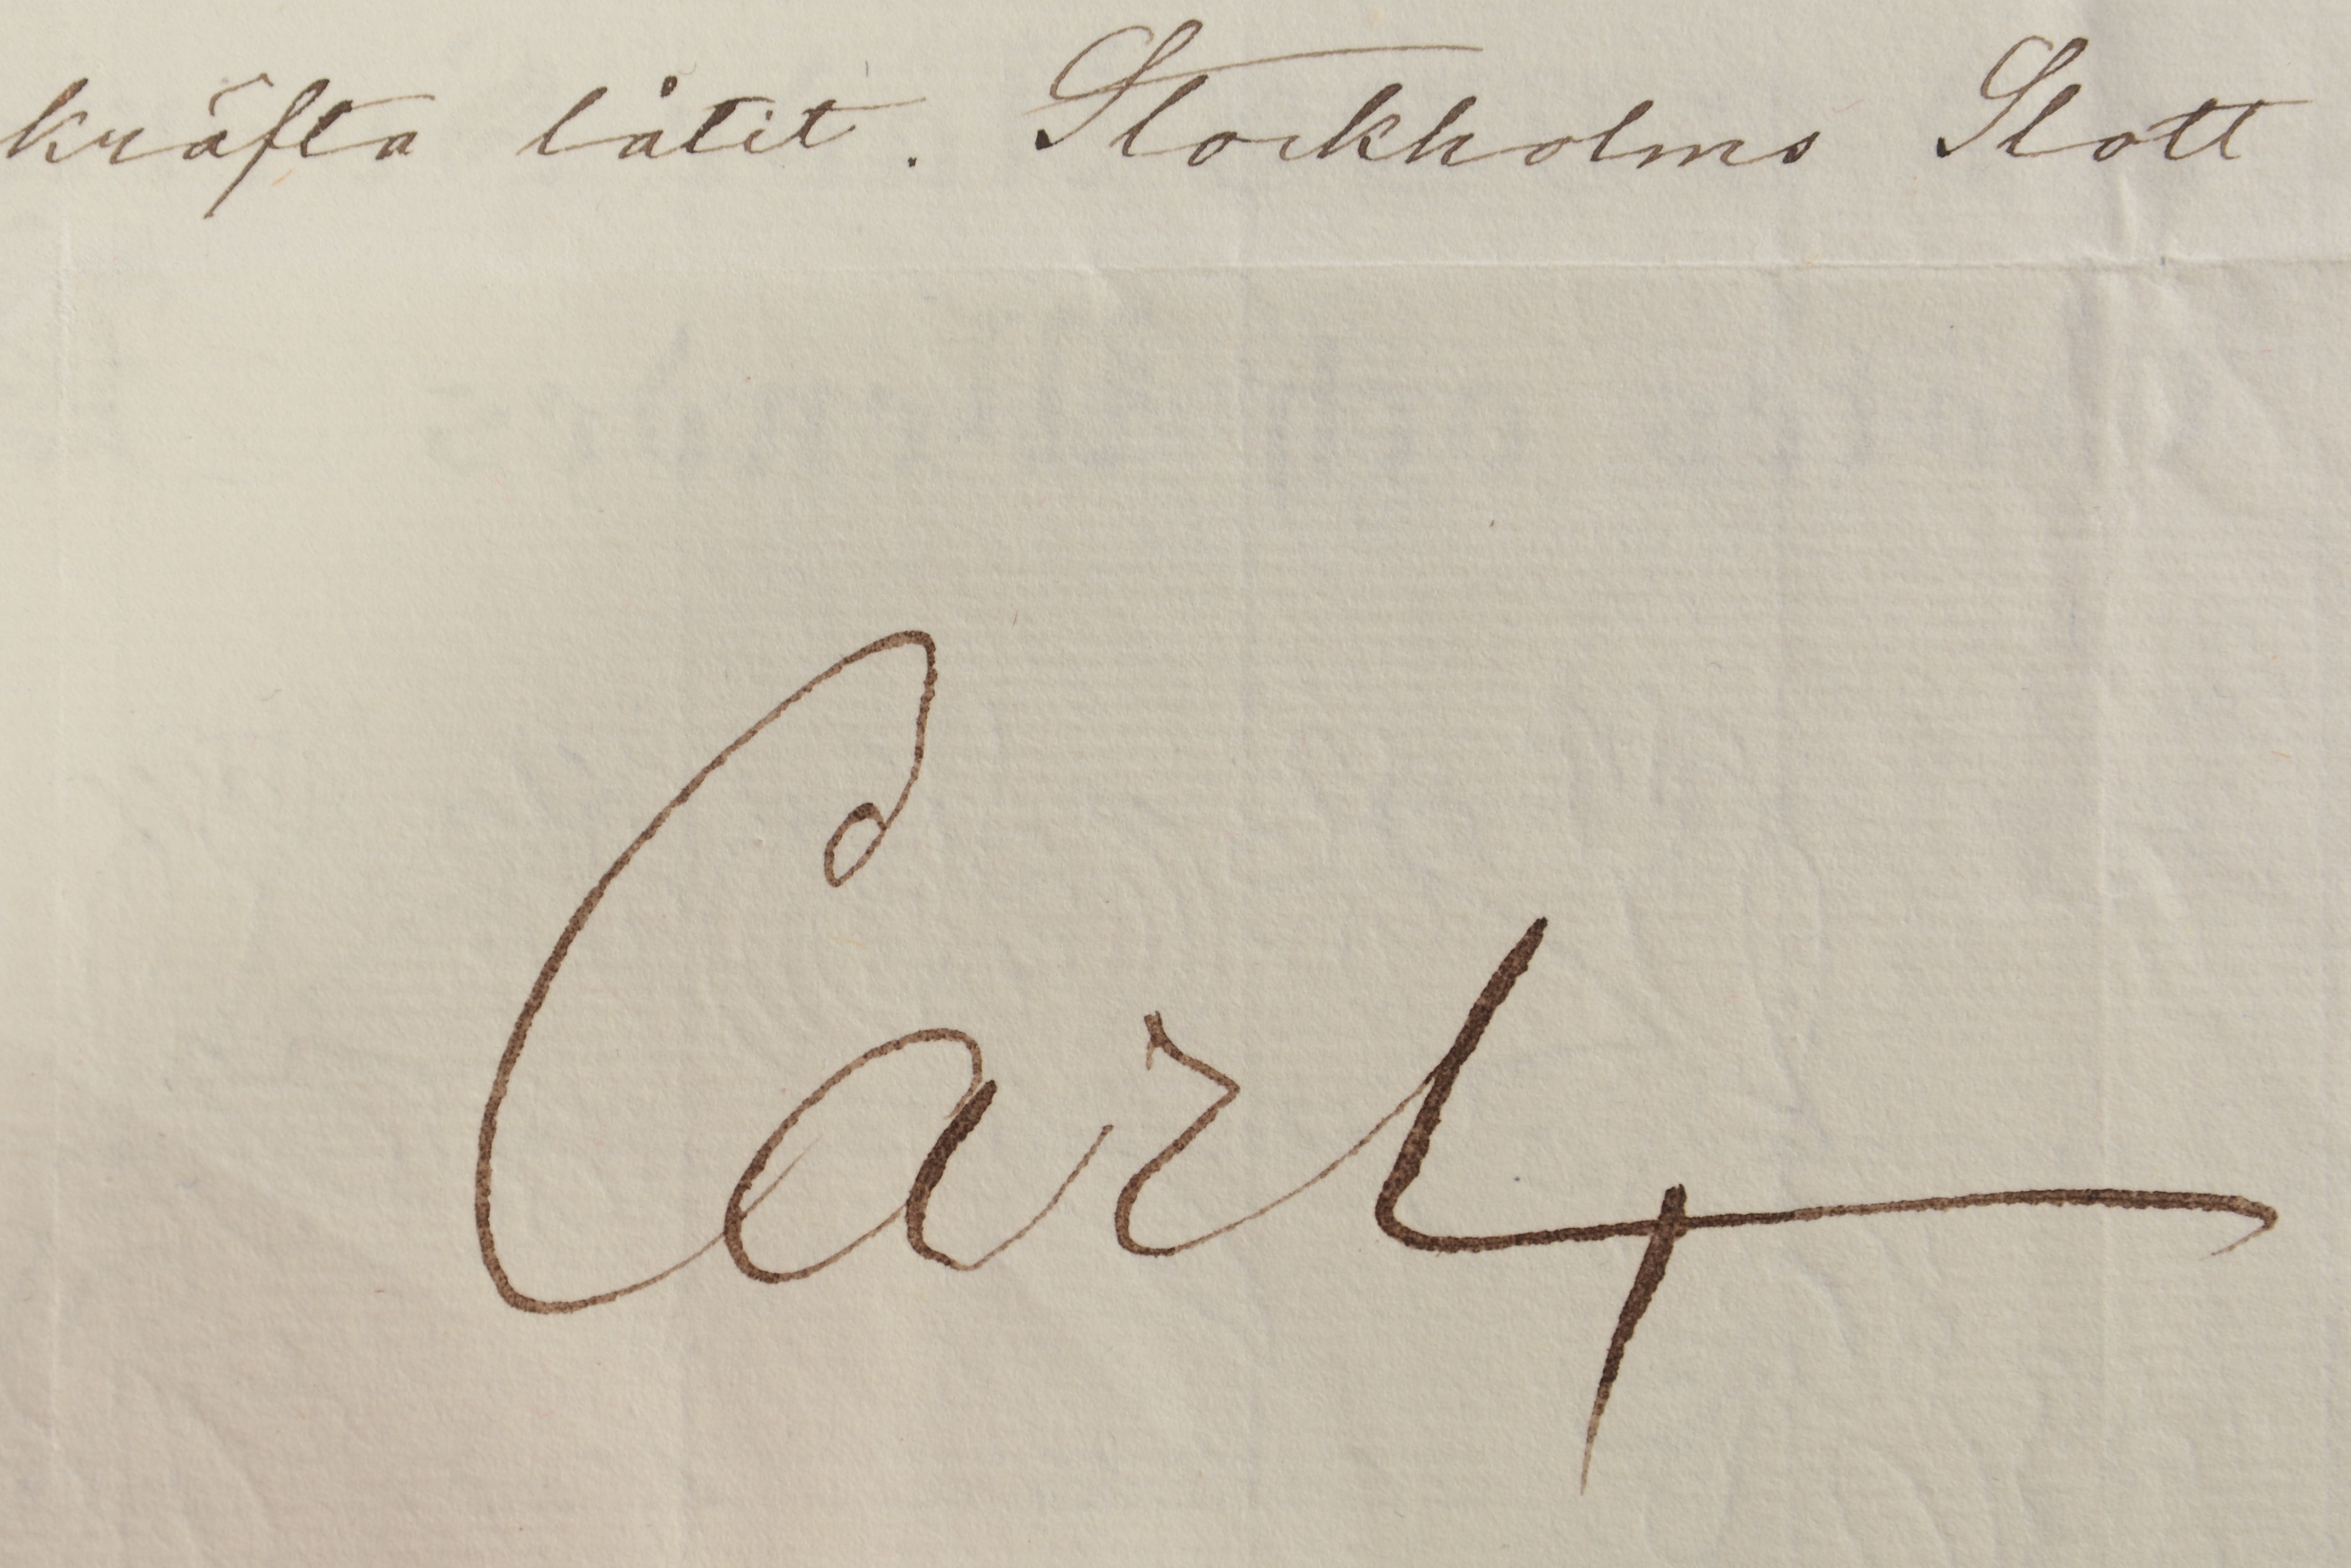 kräfta låtit. Stockholms Slott
Carl